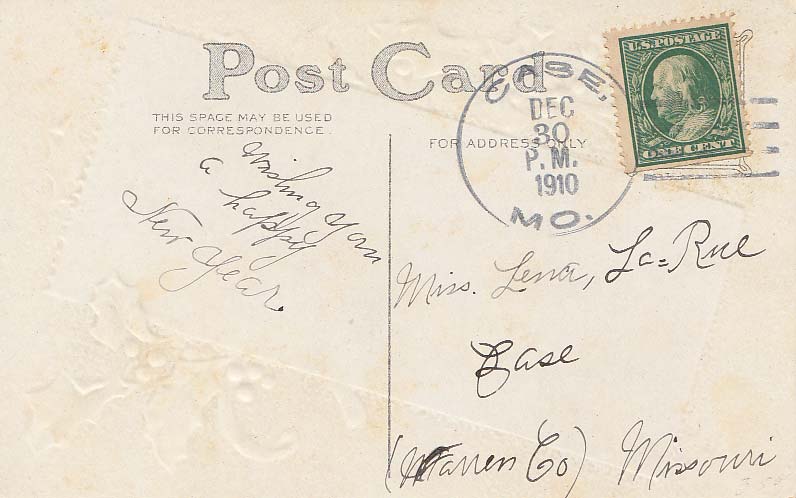 Post Card
THIS SPACE MAY BE USED
FOR CORRESPONDENCE.
Wishing you
a happy
New Year.
FOR ADDRESS ONLY
CASE,
DEC
30
P.M.
1910
MO.
U.S. POSTAGE
ONE CENT
Miss. Lena, La=Rue
Case
(Warren Co) Missouri